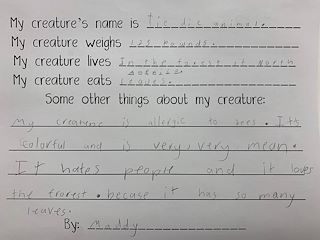 My creature's name is tie die animal.
My creature weighs 125 pounds.
My creature lives In the forest if North
My creature eats leaves.
Some other things about my creature:
My creature is allergic to bees. It's
colorful and is very, very mean.
It hates people and it loves
the frorest. becase it has so many
leaves.
By: Maddy